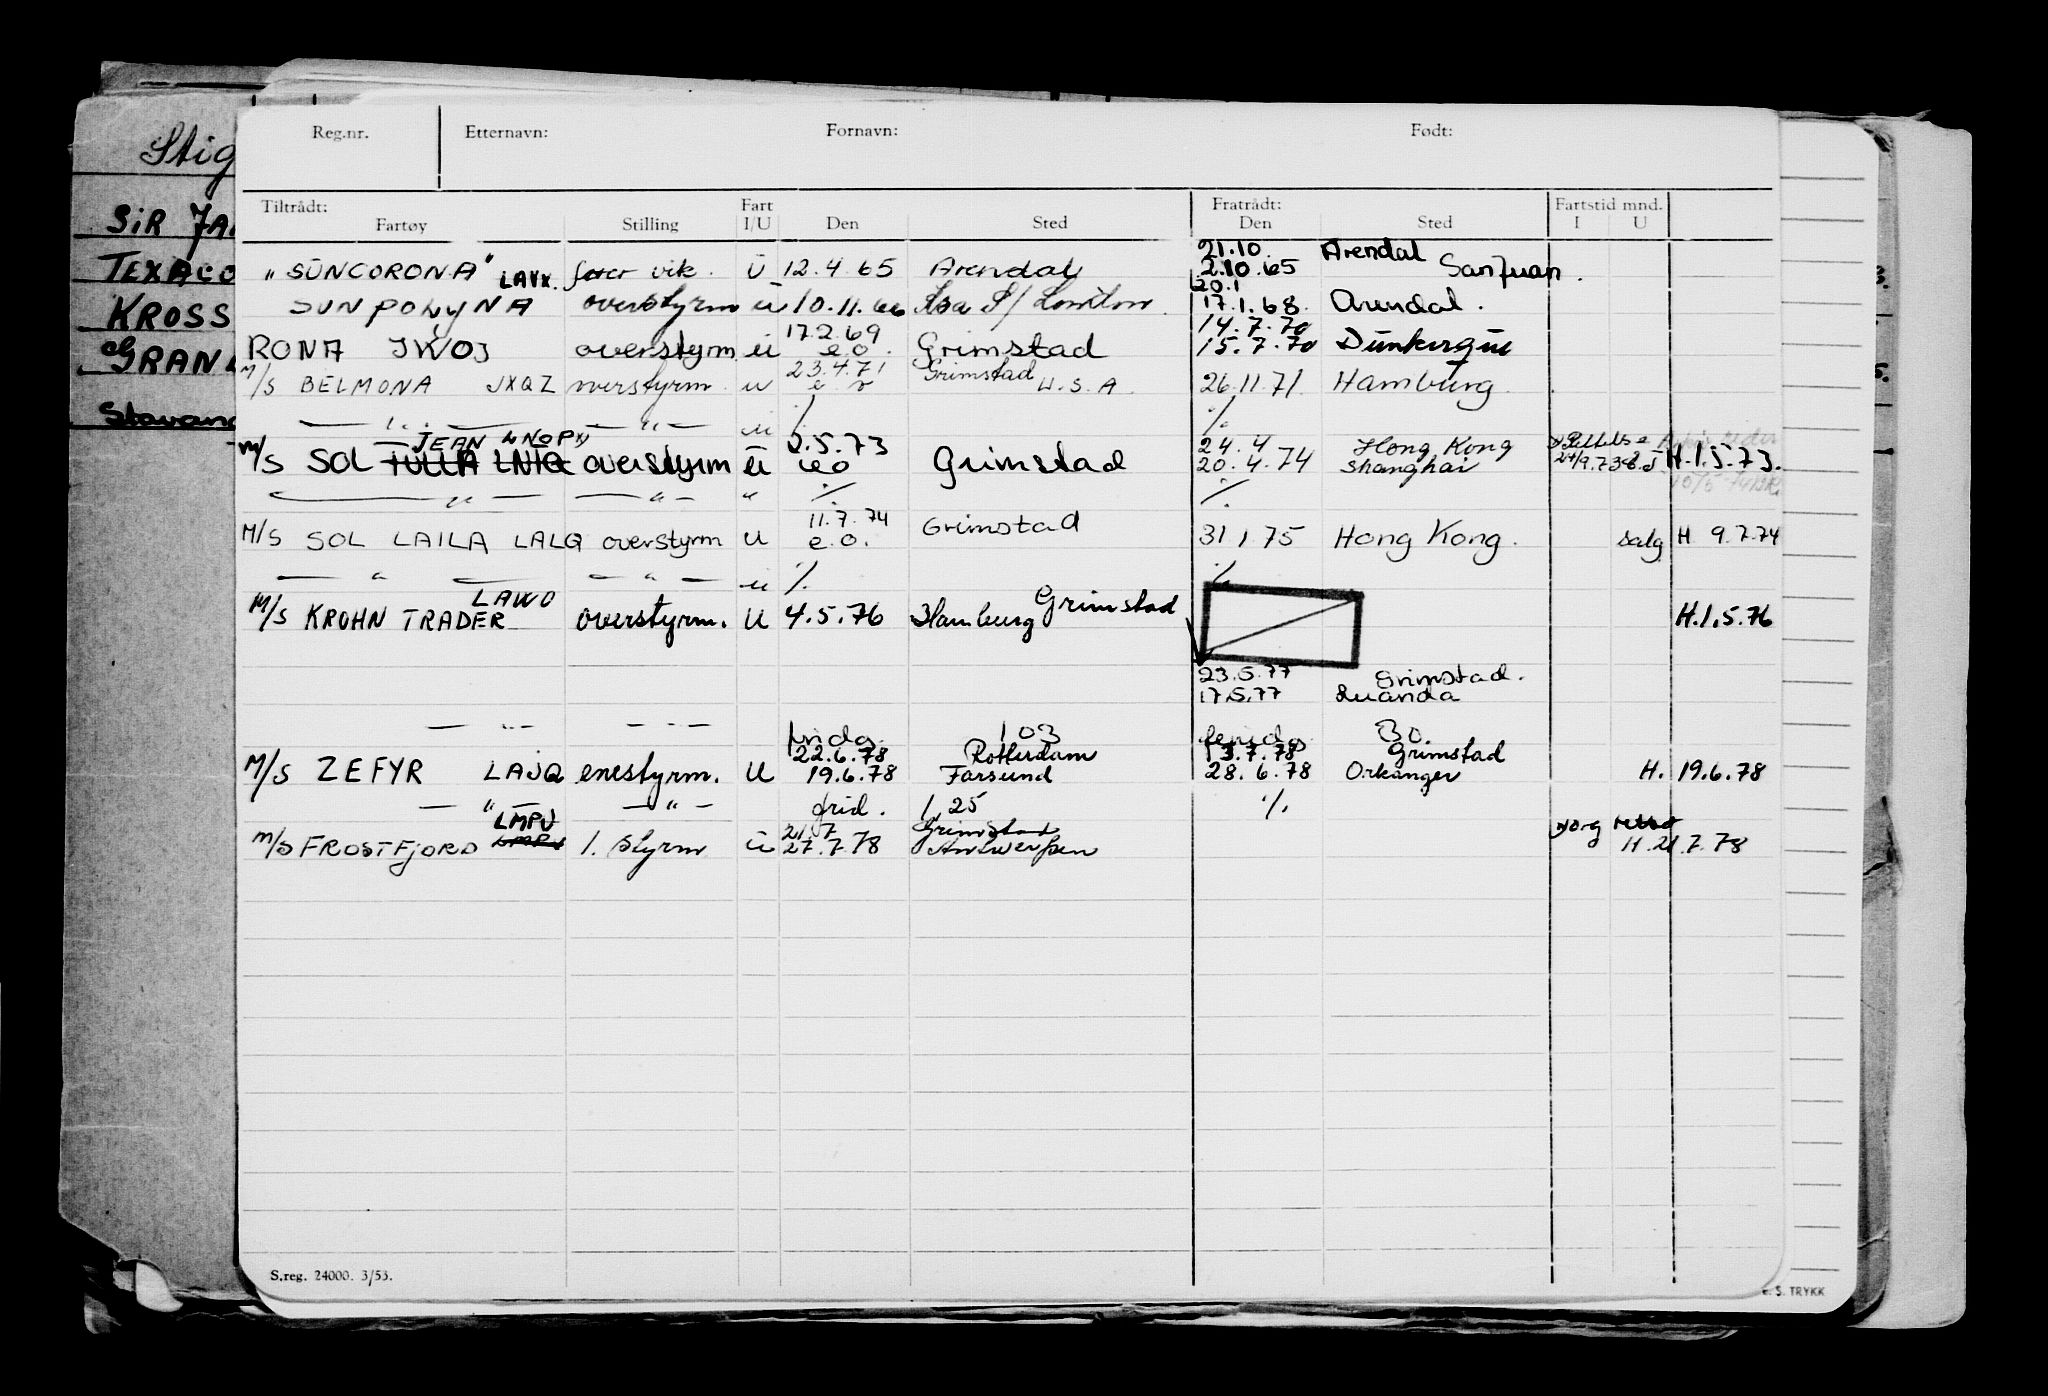 Reg.nr. Etternavn: Fornavn: Født:
Stig
Tiltrådt: Fart Fratrådt: Fartstid mnd.
Fartøy Stilling I/U Den Sted Den Sted I U
SIR JA
21.10. Arendal
TEXACO
"SUNCORONA" LAVX. vik. Ü 12.4.65 Arendal 2.10.65 San Juan.
20.1
KROSS
SUNPOLYNA overstyrm ü 10.11.66 London. 17.1.68. Arendal.
17.2.69 14.7.70
GRAN
RONA JWOJ overstyrm ü e.o. Grimstad 15.7.70 Dunkerque
23.4.71 Grimstad
M/S BELMONA JXQZ overstyrm. u U.S.A. 26.11.71. Hamburg.
Stavang
— " — — " — u ./. ./.
JEAN LNOP 2.5.73 24.4 Hong Kong
M/S SOL TULLA LNIQ overstyrm ü eo Grimstad 20.4.74 Shanghai 24/9.73 H.1.5.73.
— " — — " — " ./. ./.
11.7.74 Grimstad
M/S SOL LAILA LALQ overstyrm u e.o. 31.1.75 Hong Kong. salg H 9.7.74
— " — — " — u ./. ./.
LAWO Grimstad
M/S KROHN TRADER overstyrm. U 4.5.76 Hamburg H.1.5.76
23.5.77 Grimstad.
17.5.77 Luanda
— " — — " — 103 30
22.6.78 Rotterdam 3.7.78 Grimstad
M/S ZEFYR LAJQ enestyrm. U 19.6.78 Farsund 28.6.78 Orkanger H. 19.6.78
— " — — " — grid. 1,25 ./.
LMPV 21.7 Grimstad
M/S FROSTFJORD LMPV 1. styrm ü 27.7.78 Antwerpen H. 21.7.78
S.reg. 24000. 3/53.
S. TRYKK